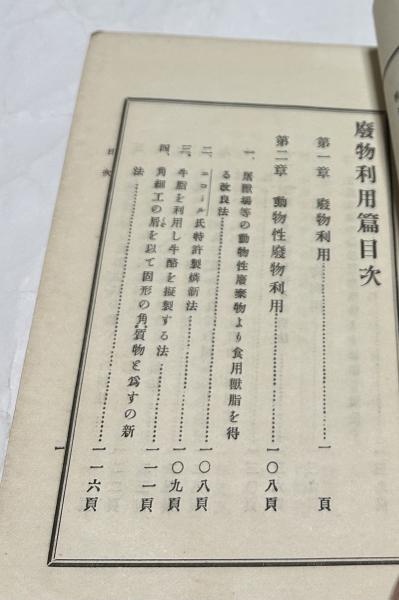 廢物利用篇目次
第一章 廢物利用……一頁
第二章 動物性廢物利用……一〇八頁
一、屠獸場等の動物性廢棄物より食用獸脂を得
る改良法……一〇八頁
二、ニコール氏特許製燐新法……一〇九頁
三、牛脂を利用し牛酪を擬製する法……一一一頁
四、角細工の屑を以て固形の角質物と爲すの新
法……一一六頁
目次
一